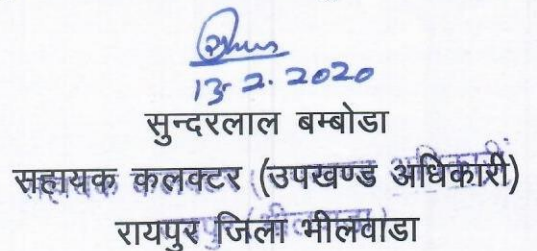 13.2.2020
सुन्दरलाल बम्बोडा
सहायक कलक्टर (उपखण्ड अधिकारी)
रायपुर जिला भीलवाडा